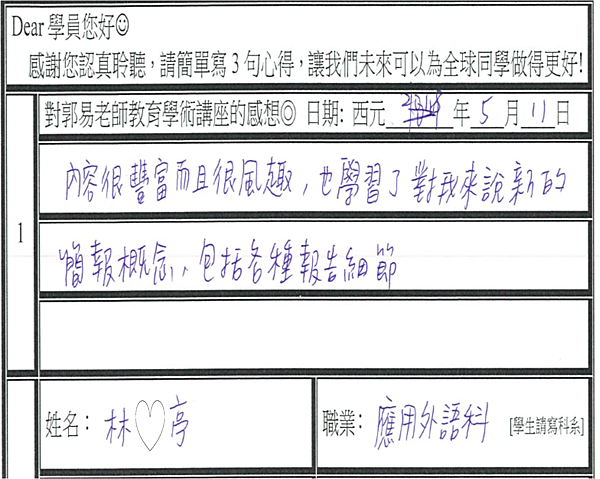 Dear 學員您好☺
感謝您認真聆聽，請簡單寫3句心得，讓我們未來可以為全球同學做得更好!
1
對郭易老師教育學術講座的感想◎ 日期: 西元 年 5 月 11 日
內容很豐富而且很風趣，也學習了對我來說新的
簡報概念，包括各種報告細節
姓名： 林♡亭
職業: 應用外語科 [學生請寫科系]